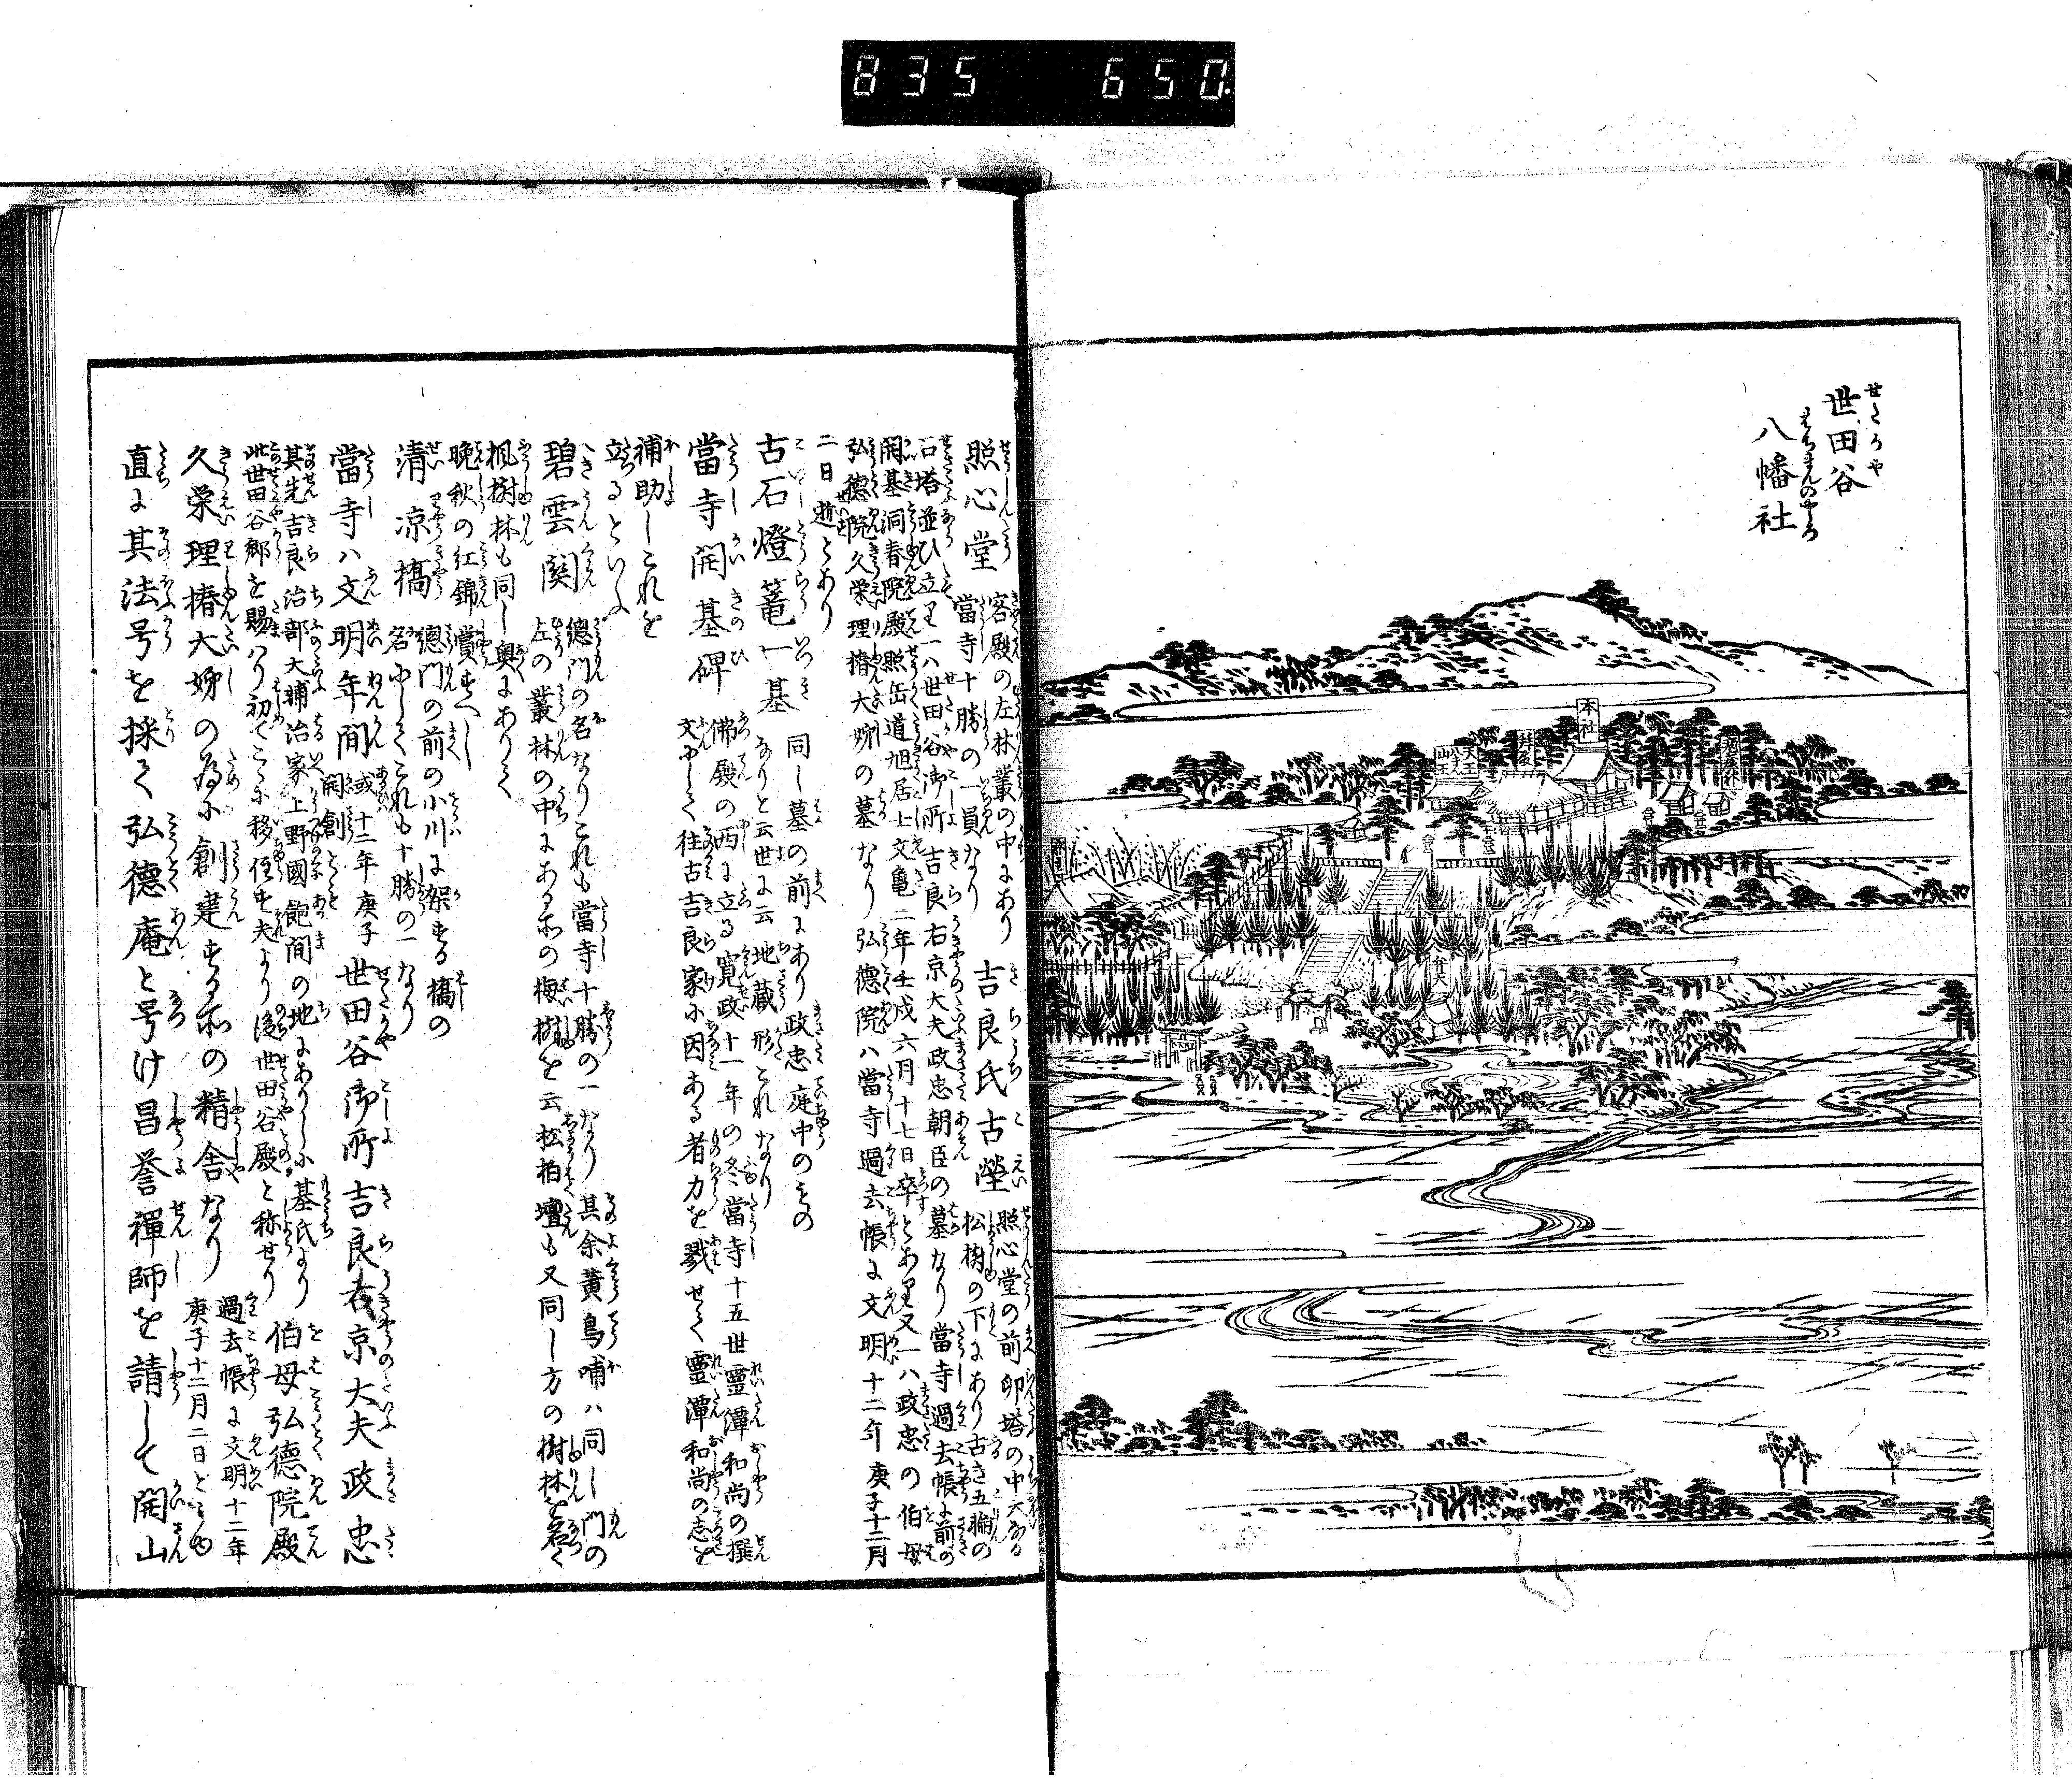 835 650
世田谷
八幡社
本社
照心堂 客殿の左林叢の中にあり
當寺十勝の一員なり
吉良氏古塋 照心堂の前卵塔の中大なる
松樹の下にあり古き五輪の
石塔並ひ立り一ハ世田谷御所吉良右京大夫政忠朝臣の墓なり當寺過去帳に前の
開基洞春院殿照岳道旭居士文亀二年壬戌六月十七日卒とあり又一ハ政忠の伯母
弘德院久栄理椿大姉の墓なり弘德院ハ當寺過去帳に文明十二年庚子十二月
二日逝とあり
古石燈篭一基 同し墓の前にあり政忠庭中のもの
なりと云世に云地蔵形これなり
當寺開基碑 佛殿の西に立る寛政十一年の冬當寺十五世靈潭和尚の撰
文にして往古吉良家に因ある者力を戮せて靈潭和尚の志を
補助しこれを
立るといふ
碧雲関 總門の名なりこれも當寺十勝の一なり其余黄鳥哺ハ同し門の
左の叢林の中にある所の梅樹を云松柏壇も又同し方の樹林を名く
楓樹林も同し奥にありて
晩秋の紅錦賞すへし
清凉橋 總門の前の小川に架する橋の
名にしてこれも十勝の一なり
當寺ハ文明年間 或十二年庚子
開創とも 世田谷御所吉良右京大夫政忠
其先吉良治部大補治家上野國飽間の地にありしに基氏より
此世田谷郷を賜ハり初てこゝに移住す夫より後世田谷殿と称せり 伯母弘德院殿
久栄理椿大姉の為に創建する所の精舎なり 過去帳に文明十二年
庚子十二月二日とみゆ
直に其法号を採て弘德庵と号け昌誉禪師を請して開山